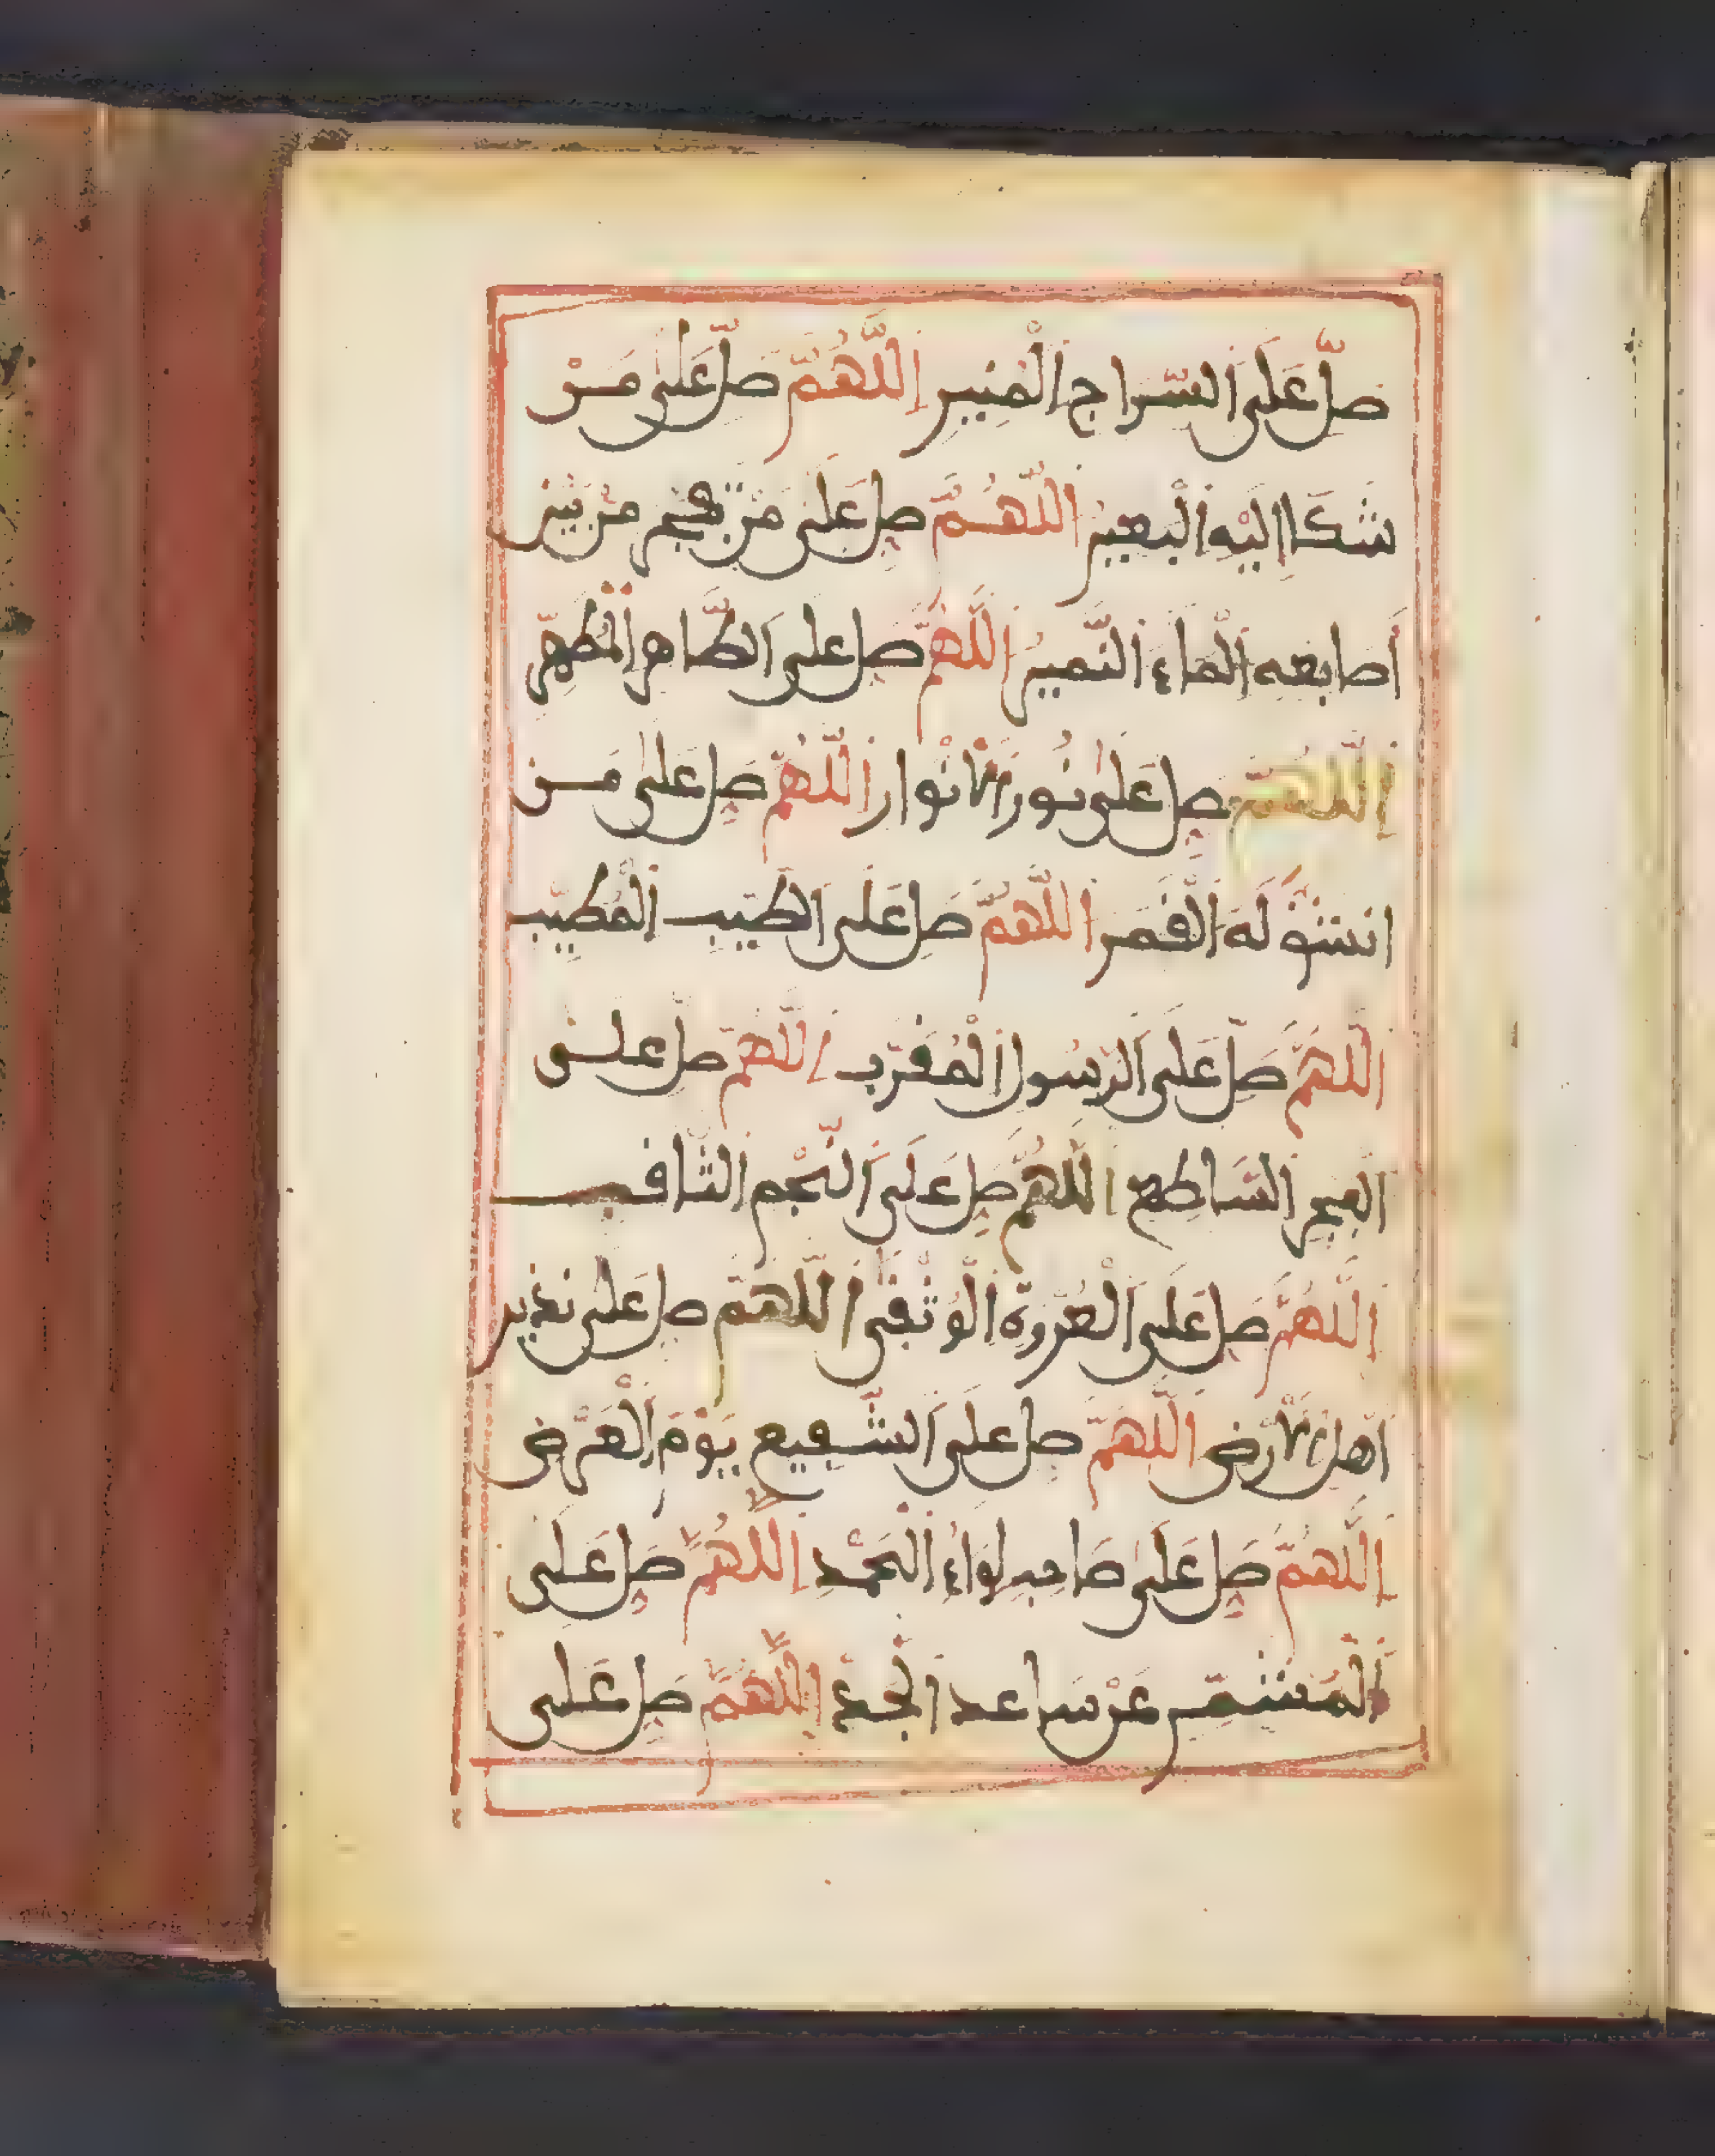 صَلِّ عَلَى السِّرَاجِ الْمُنِيرِ اللَّهُمَّ صَلِّ عَلَى مَنْ
شَكَا إِلَيْهِ الْبَعِيرُ اللَّهُمَّ صَلِّ عَلَى مَنْ تَفَجَّرَ مِنْ بَيْنِ
أَصَابِعِهِ الْمَاءُ النَّمِيرُ اللَّهُمَّ صَلِّ عَلَى الطَّاهِرِ الْمُطَهَّرِ
اللَّهُمَّ صَلِّ عَلَى نُورِ الْأَنْوَارِ اللَّهُمَّ صَلِّ عَلَى مَنِ
انْشَقَّ لَهُ الْقَمَرُ اللَّهُمَّ صَلِّ عَلَى الطَّيِّبِ الْمُطَيَّبِ
اللَّهُمَّ صَلِّ عَلَى الرَّسُولِ الْمُقَرَّبِ اللَّهُمَّ صَلِّ عَلَى
الْفَجْرِ السَّاطِعِ اللَّهُمَّ صَلِّ عَلَى النَّجْمِ الثَّاقِبِ
اللَّهُمَّ صَلِّ عَلَى الْعُرْوَةِ الْوُثْقَى اللَّهُمَّ صَلِّ عَلَى نَذِيرِ
أَهْلِ الْأَرْضِ اللَّهُمَّ صَلِّ عَلَى الشَّفِيعِ يَوْمَ الْعَرْضِ
اللَّهُمَّ صَلِّ عَلَى صَاحِبِ لِوَاءِ الْحَمْدِ اللَّهُمَّ صَلِّ عَلَى
الْمُشَمِّرِ عَنْ سَاعِدِ الْجِدِّ اللَّهُمَّ صَلِّ عَلَى